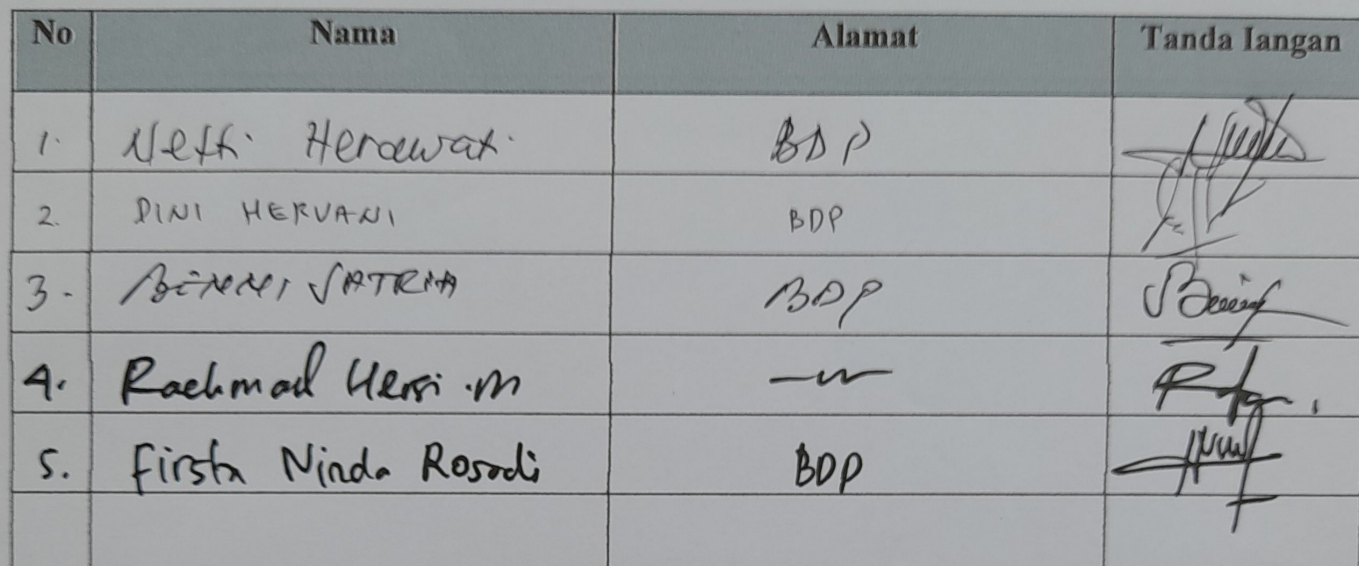 No Nama Alamat Tanda Tangan
1. Netti Herawati BDP
2. DINI HERVANI BDP
3. BENNI SATRIA BDP
4. Rachmad Hersi .M
5. Firsta Ninda Rosadi BDP